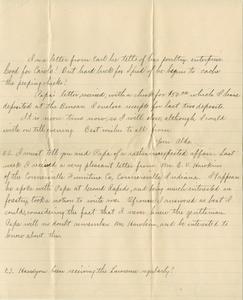 In a letter from Carl he tells of his poultry enterprise
Good for Carl! But hard luck for Fred if he begins to cache
the peeping chicks!
Papa's letter received, with a check for $50.00 which I have
deposited at the Bureau. I enclose receipts for last two deposits.
It is now time now, so I will close, although I could
write on till evening. Best wishes to all from
Your Alda.
P.S. I must tell you and Papa of a rather unexpected affair. Last
week I received a very pleasant letter from Mr. E. V. Hawkins
of the Connersville Furniture Co, Connersville, Indiana.
he spoke with Papa at Grand Rapids, and being much interested in
forestry took a notion to write me. Of course I answered as best I
could, considering the fact that I never knew the gentleman.
Papa will no doubt remember Mr. Hawkins, and be interested to
know about this.
P.S. Have you been receiving the Lawrence regularly?